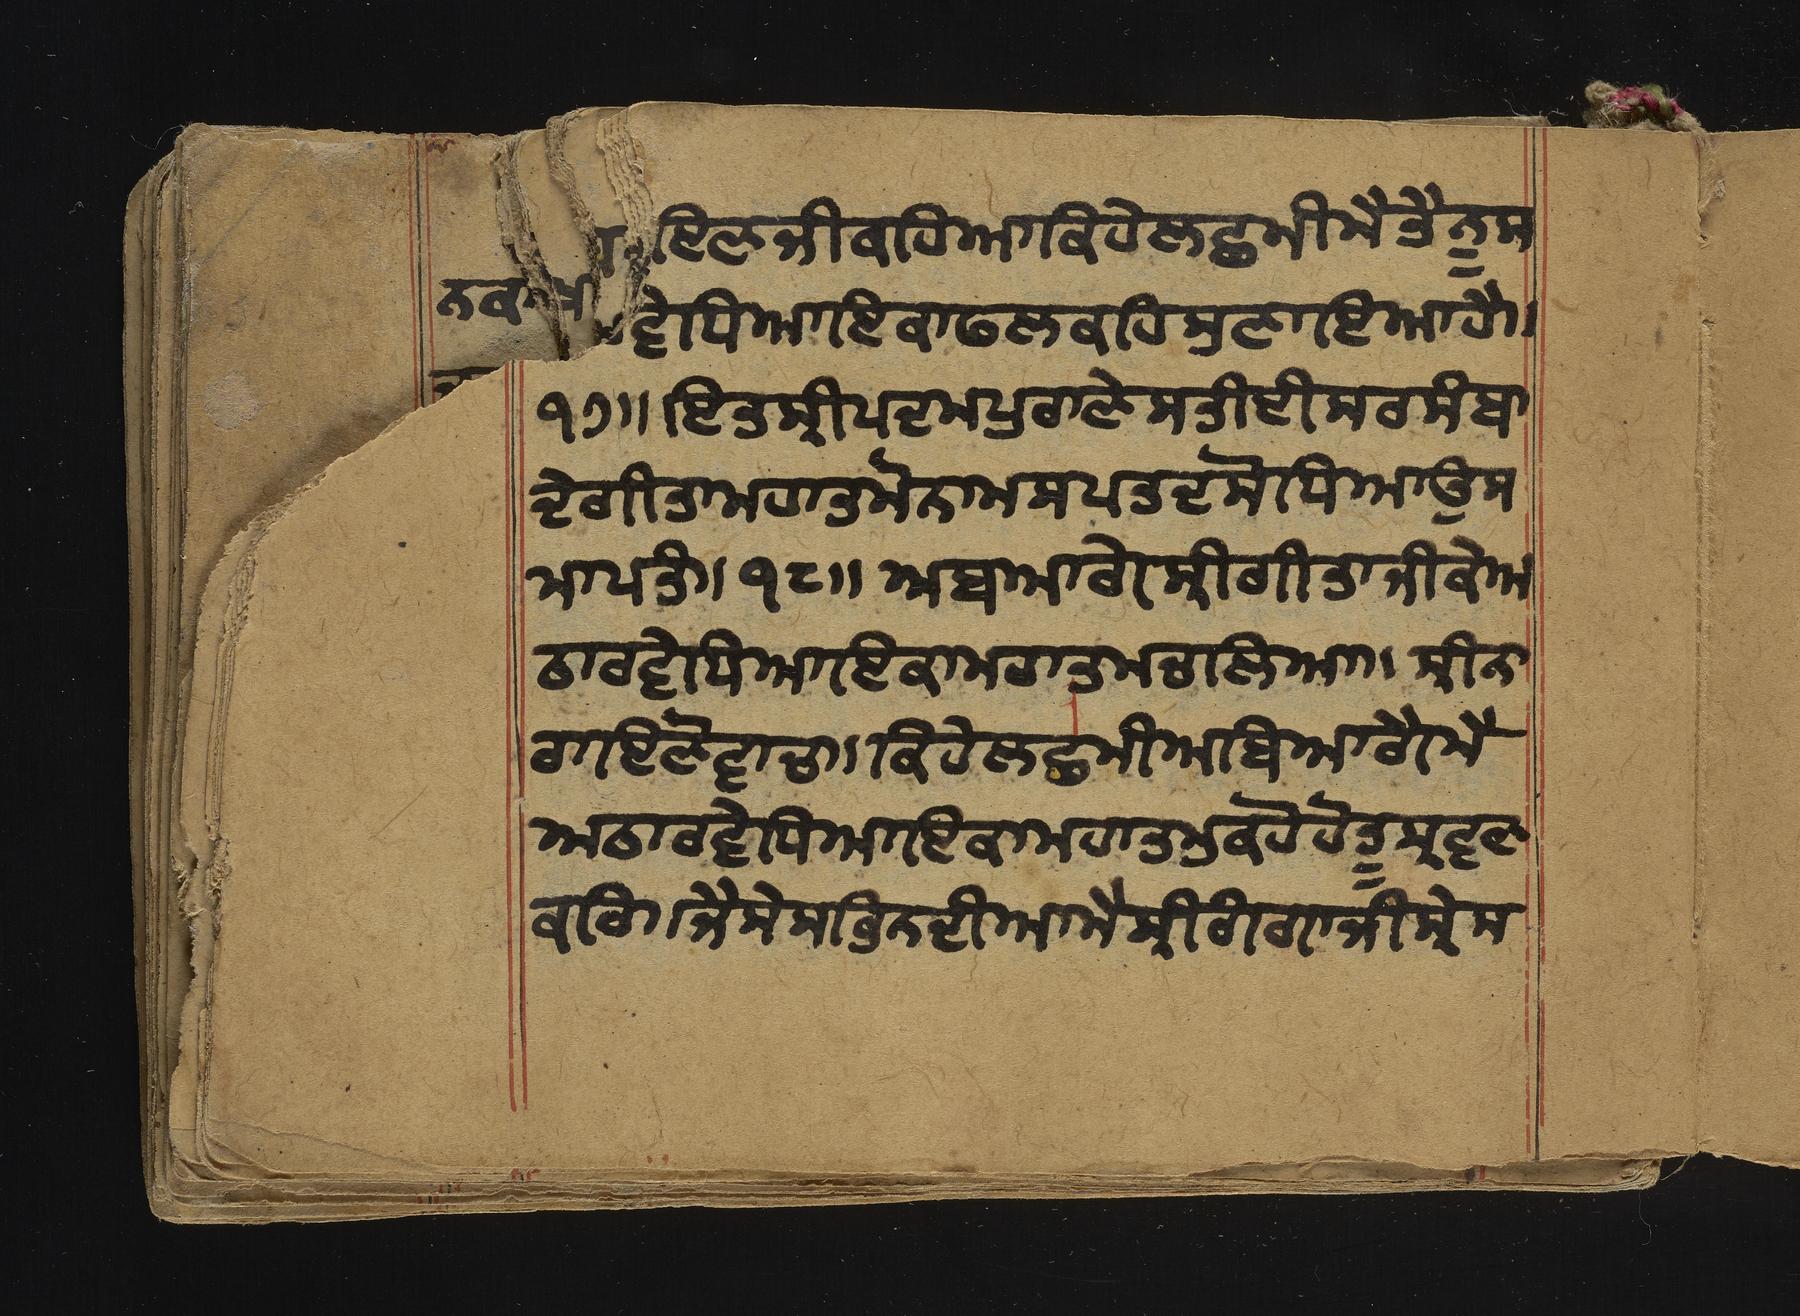 ਇਣਜੀਕਹਿਆਕਿਹੇਲਛਮੀਮੈਤੈਨੂਸ
ਨਕਾ
ਵ੍ਵੇਧਿਆਇਕਾਫਲਕਹਿਸੁਣਾਇਆਹੈ।
੧੭॥ਇਤਸ੍ਰੀਪਦਮਪੁਰਾਣੇਸਤੀਈਸਰਸੰਬਾ
ਦੇਗੀਤਾਮਹਾਤਮੋਨਾਮਸਪਤਦਸੋਧਿਆਉਸ
ਮਾਪਤੰ॥੧੮॥ਅਬਆਗੇਸ੍ਰੀਗੀਤਾਜੀਕੇਅ
ਠਾਰਵੇਧਿਆਇਕਾਮਹਾਤਮਚਾਲਿਆ॥ਸ੍ਰੀਨ
ਰਾਇਣੋਵਾਚ॥ਕਿਹੇਲਛਮੀਅਬਿਆਗੈਮੈ
ਅਠਾਰਵੇਧਿਆਇਕਾਮਹਾਤਮੁਕਹੋਹੋਤੂਸ੍ਰਵਣ
ਕਰਿ॥ਜੈਸੇਸਰਿਨਦੀਆਮੈਸ੍ਰੀਗੰਗਾਜੀਸ੍ਰੇਸ